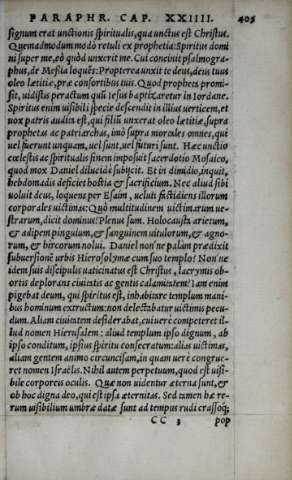 PARAPHR. CAP. XXIIII. 405
signum erat unctionis spiritualis, qua unctus est Christus.
Quemadmodum modò retuli ex prophetia: Spiritus domi
ni super me, eò quòd unxerit me. Cui concinit psalmogra-
phus, de Messia loquẽs: Propterea unxit te deus, deus tuus
oleo lætitiæ, præ consortibus tuis. Quod prophets promi-
sit, uidistis peractum quũ Iesus baptizaretur in Iordane.
Spiritus enim uisibili specie descendit in illius uerticem, et
uox patris audita est, qui filiũ unxerat oleo lætitiæ, supra
prophetas ac patriarchas, imò supra mortales omnes, qui
uel fuerunt unquam, uel sunt, uel futuri sunt. Hæc unctio
cœlestis ac spiritualis finem imposuit sacerdotio Mosaico,
quod mox Daniel dilucidè subijcit. Et in dimidio, inquit,
hebdomadis deficiet hostia & sacrificium. Nec aliud sibi
uoluit deus, loquens per Esaiam, uelut fastidiens illorum
corporales uictimas: Quò multitudinem uictimarum ue-
strarum, dicit dominus? Plenus sum. Holocausta arietum,
& adipem pinguium, & sanguinem uitulorum, & agno-
rum, & hircorum nolui. Daniel non'ne palàm prædixit
subuersionẽ urbis Hierosolymæ cum suo templo? Non'ne
idem suis discipulis uaticinatus est Christus, lacrymis ob-
ortis deplorans ciuitatis ac gentis calamitatem? Iam enim
pigebat deum, qui spiritus est, inhabitare templum mani-
bus hominum extructum: non delectabatur uictimis pecu-
dum. Aliam ciuitatem desiderabat, cui uerè competeret il-
lud nomen Hierusalem: aliud templum ipso dignum, ab
ipso conditum, ipsius spiritu consecratum: alias uictimas,
aliam gentem animo circuncisam, in quam uerè congrue-
ret nomen Israëlis. Nihil autem perpetuum, quod est uisi-
bile corporeis oculis. Quæ non uidentur æterna sunt, &
ob hoc digna deo, qui est ipsa æternitas. Sed tamen hæ re-
rum uisibilium umbræ datæ sunt ad tempus rudi crassoq́;
CC 3 pop